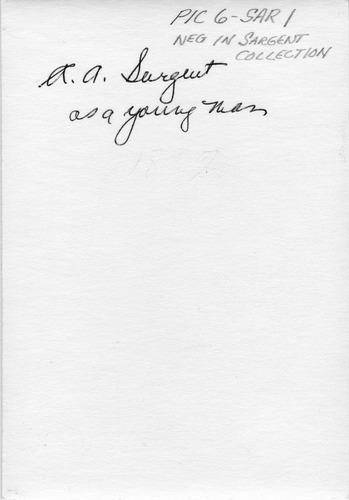 PIC 6-SAR 1
NEG IN SARGENT
COLLECTION
A. A. Sargent
as a young man